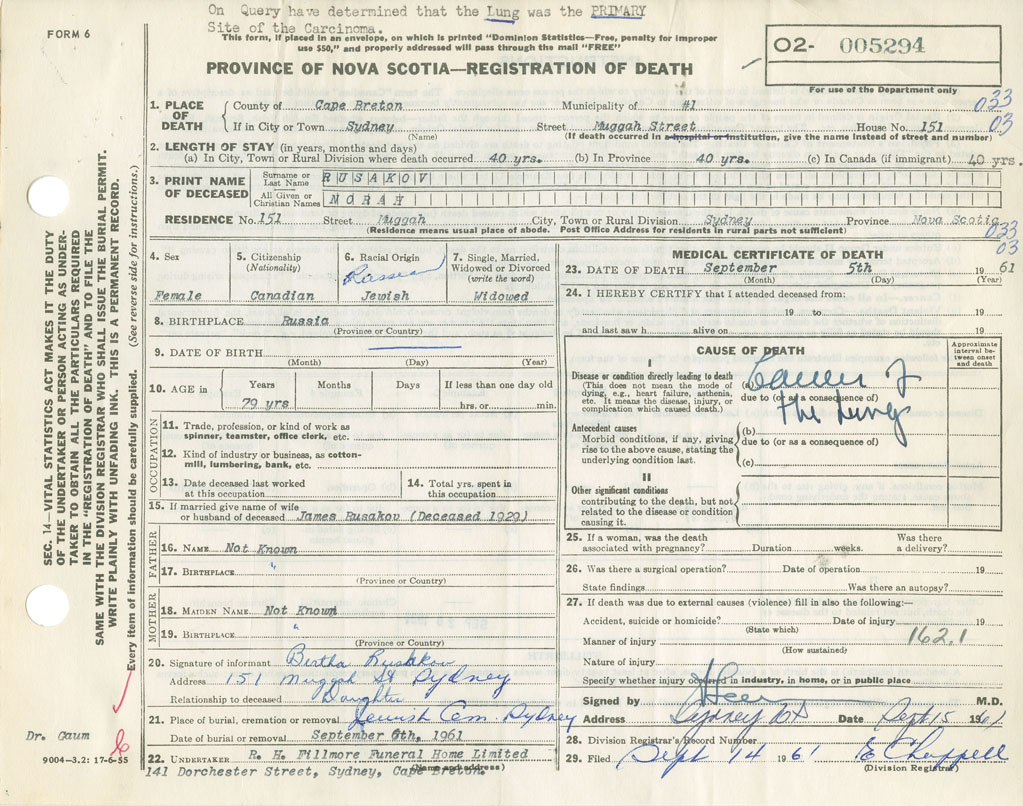 On Query have determined that the Lung was the PRIMARY
Site of the Carcinoma.
FORM 6
This form, if placed in an envelope, on which is printed "Dominion Statistics—Free, penalty for improper
use $50," and properly addressed will pass through the mail "FREE"
O2- 005294
PROVINCE OF NOVA SCOTIA—REGISTRATION OF DEATH
For use of the Department only
033
03
1. PLACE OF DEATH County of Cape Breton Municipality of #1
If in City or Town Sydney Street Muggah Street House No. 151
(Name) (If death occurred in a hospital or institution, give the name instead of street and number)
2. LENGTH OF STAY (in years, months and days)
(a) In City, Town or Rural Division where death occurred 40 yrs. (b) In Province 40 yrs. (c) In Canada (if immigrant) 40 yrs.
3. PRINT NAME OF DECEASED Surname or Last Name RUSAKOV
All Given or Christian Names NORAH
RESIDENCE No. 151 Street Muggah City, Town or Rural Division Sydney Province Nova Scotia
(Residence means usual place of abode. Post Office Address for residents in rural parts not sufficient)
033
03
4. Sex
Female
5. Citizenship
(Nationality)
Canadian
6. Racial Origin
Russian
Jewish
7. Single, Married,
Widowed or Divorced
(write the word)
Widowed
8. BIRTHPLACE Russia
(Province or Country)
9. DATE OF BIRTH
(Month) (Day) (Year)
10. AGE in Years Months Days If less than one day old
79 yrs hrs. or min.
OCCUPATION
11. Trade, profession, or kind of work as
spinner, teamster, office clerk, etc.
12. Kind of industry or business, as cotton-
mill, lumbering, bank, etc.
13. Date deceased last worked
at this occupation
14. Total yrs. spent in
this occupation
15. If married give name of wife
or husband of deceased James Rusakov (Deceased 1929)
FATHER
16. NAME Not Known
17. BIRTHPLACE "
(Province or Country)
MOTHER
18. MAIDEN NAME Not Known
19. BIRTHPLACE "
(Province or Country)
20. Signature of informant Birtha Rusakov
Address 151 Muggah St Sydney
Relationship to deceased Daughter
21. Place of burial, cremation or removal Jewish Cem. Sydney
Date of burial or removal September 6th, 1961
22. UNDERTAKER R. H. Fillmore Funeral Home Limited
141 Dorchester Street, Sydney, Cape Breton.
(Name and address)
MEDICAL CERTIFICATE OF DEATH
23. DATE OF DEATH September 5th 1961
(Month) (Day) (Year)
24. I HEREBY CERTIFY that I attended deceased from:
19 to 19
and last saw h alive on 19
CAUSE OF DEATH
Approximate
interval be-
tween onset
and death
I
Disease or condition directly leading to death
(This does not mean the mode of
dying, e.g., heart failure, asthenia,
etc. It means the disease, injury, or
complication which caused death.)
(a) Cancer of
due to (or as a consequence of)
The Lung
Antecedent causes
Morbid conditions, if any, giving
rise to the above cause, stating the
underlying condition last.
(b)
due to (or as a consequence of)
(c)
II
Other significant conditions
contributing to the death, but not
related to the disease or condition
causing it.
25. If a woman, was the death Was there
associated with pregnancy? Duration weeks. a delivery?
26. Was there a surgical operation? Date of operation 19
State findings Was there an autopsy?
27. If death was due to external causes (violence) fill in also the following:—
Accident, suicide or homicide? Date of injury 19
(State which)
162.1
Manner of injury
(How sustained)
Nature of injury
Specify whether injury occurred in industry, in home, or in public place
Signed by M.D.
Address Sydney NS Date Sept 15 1961
28. Division Registrar's Record Number
29. Filed Sept 14 1961 E Chappell
(Division Registrar)
SEC. 14—VITAL STATISTICS ACT MAKES IT THE DUTY
OF THE UNDERTAKER OR PERSON ACTING AS UNDER-
TAKER TO OBTAIN ALL THE PARTICULARS REQUIRED
IN THE "REGISTRATION OF DEATH" AND TO FILE THE
SAME WITH THE DIVISION REGISTRAR WHO SHALL ISSUE THE BURIAL PERMIT.
WRITE PLAINLY WITH UNFADING INK. THIS IS A PERMANENT RECORD.
Every item of information should be carefully supplied. (See reverse side for instructions.)
Dr. Gaum
9004-3.2: 17-6-55